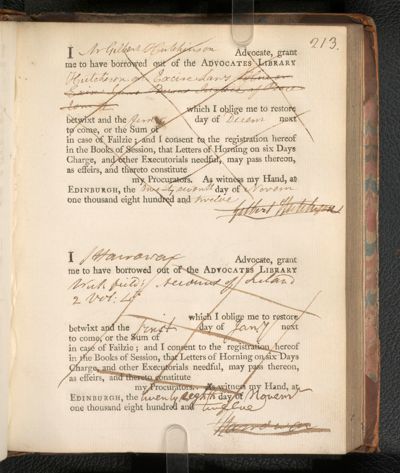 213.
I Mr Gilbert Hutchinson Advocate, grant
me to have borrowed out of the ADVOCATES LIBRARY
Hutcheson on Excise Laws
which I oblige me to restore
betwixt and the first day of Decem next
to come, or the Sum of
in case of Failzie; and I consent to the registration hereof
in the Books of Session, that Letters of Horning on six Days
Charge, and other Executorials needful, may pass thereon,
as effeirs, and thereto constitute
my Procurators. As witness my Hand, at
EDINBURGH, the twenty seventh day of Novem
one thousand eight hundred and twelve
Gilbert Hutchinson
I Advocate, grant
me to have borrowed out of the ADVOCATES LIBRARY
Wakefield's Account of Ireland
2 Vol: 4to
which I oblige me to restore
betwixt and the first day of Jany next
to come, or the Sum of
in case of Failzie; and I consent to the registration hereof
in the Books of Session, that Letters of Horning on six Days
Charge, and other Executorials needful, may pass thereon,
as effeirs, and thereto constitute
my Procurators. As witness my Hand, at
EDINBURGH, the twenty eighth day of Novem
one thousand eight hundred and twelve